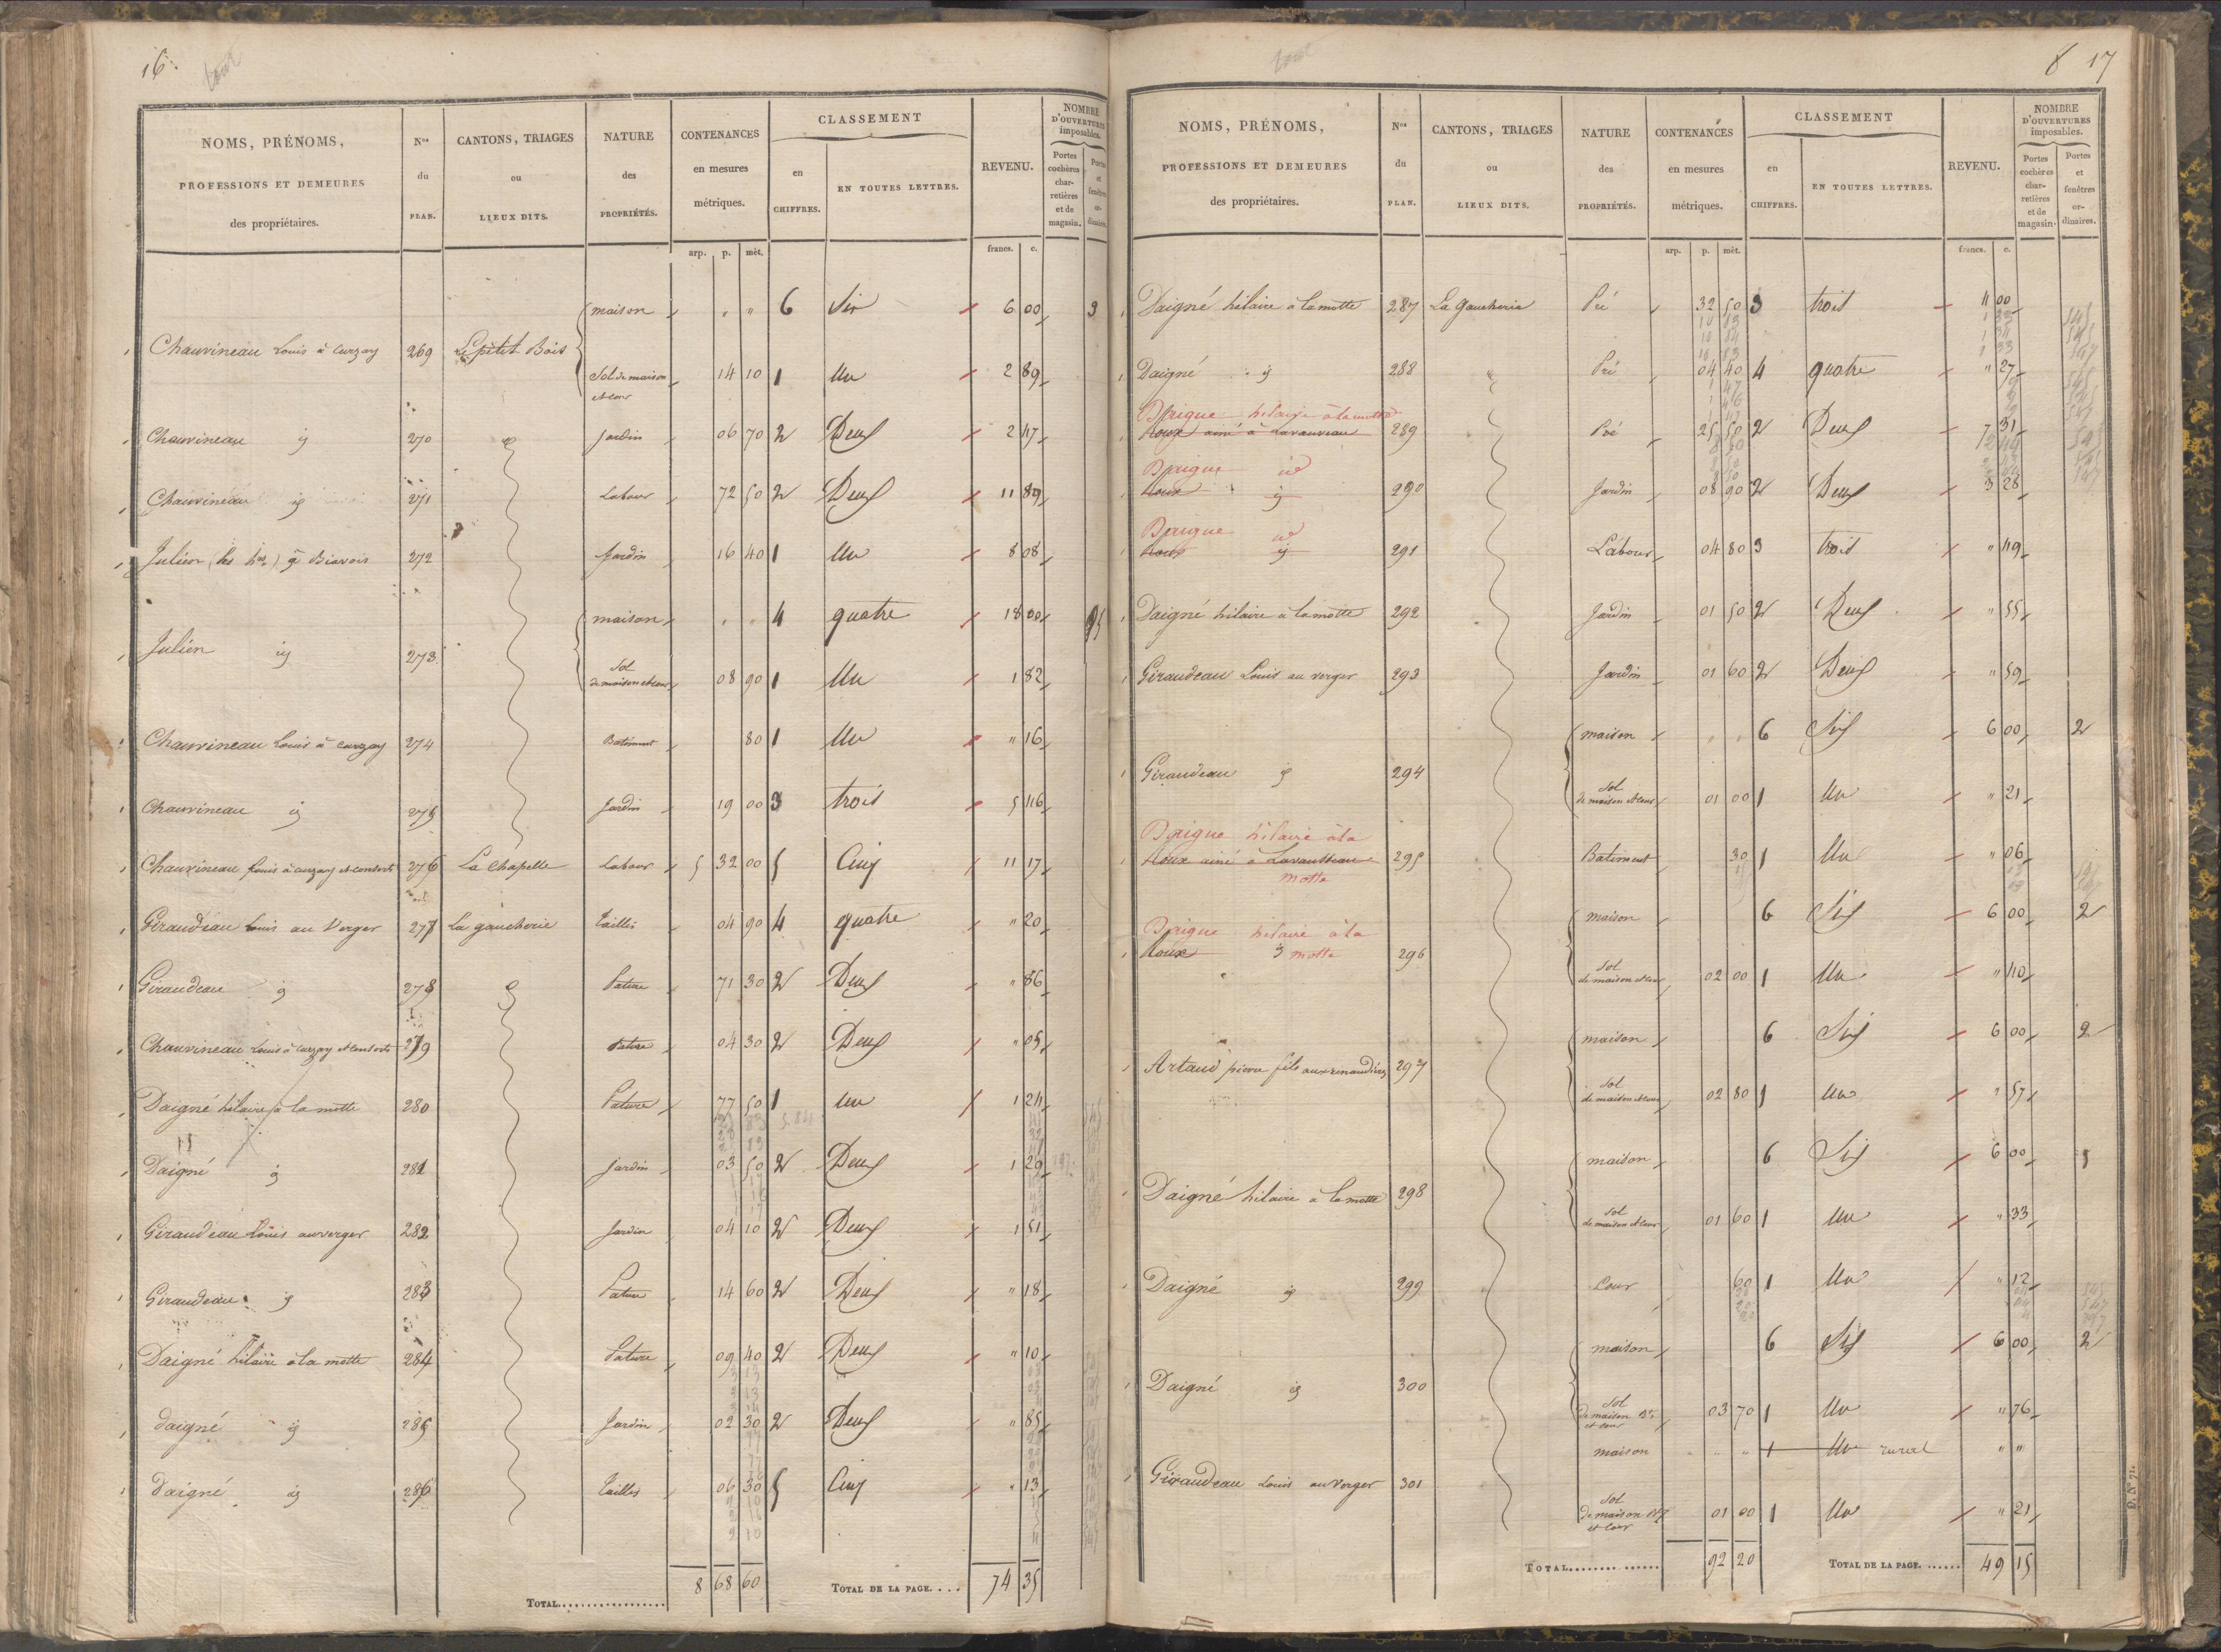 16.
NOMS, PRÉNOMS, PROFESSIONS ET DEMEURES des propriétaires.
Nos du PLAN.
CANTONS, TRIAGES ou LIEUX DITS.
NATURE des PROPRIÉTÉS.
CONTENANCES en mesures métriques.
CLASSEMENT
en CHIFFRES.
EN TOUTES LETTRES.
REVENU.
NOMBRE D'OUVERTURES imposables.
Portes cochères charretières et de magasin.
Portes et fenêtres ordinaires.
arp. p. mèt. francs. c.
maison " " 6 Six 6 00 3
Chauvineau Louis à Curzay 269 Le petit Bois
Sol de maison et cour 14 10 1 Un 2 89
Chauvineau id 270 Jardin 06 70 2 Deux 2 47
Chauvineau id 271 Labour 72 50 2 Deux 11 89
Julien (les hrs) 272 Jardin 16 40 1 Un 8 08
maison " " 4 quatre 18 00
Julien id 273
Sol de maison et cour 08 90 1 Un 1 82
Chauvineau Louis à Curzay 274 Batiment 80 1 Un " 16
Chauvineau id 275 Jardin 19 00 3 trois 5 46
Chauvineau Louis à Curzay et consorts 276 La Chapelle Labour 5 32 00 5 Cinq 11 17
Giraudeau Louis au Verger 277 La gaucherie Taillis 04 90 4 quatre " 20
Giraudeau id 278 Pature 71 30 2 Deux " 86
Chauvineau Louis à Curzay et consorts 279 Pature 04 30 2 Deux " 05
Daigné hilaire à la motte 280 Pature 77 50 1 Un 1 24
Daigné id 281 Jardin 03 50 2 Deux 1 29
Giraudeau Louis au verger 282 Jardin 04 10 2 Deux 1 51
Giraudeau id 283 Pature 14 60 2 Deux " 18
Daigné hilaire à la motte 284 Pature 09 40 2 Deux " 10
daigné id 285 Jardin 02 30 2 Deux " 85
Daigné id 286 Taillis 06 30 5 Cinq " 13
TOTAL 8 68 60 TOTAL DE LA PAGE.... 74 35
8 17
NOMS, PRÉNOMS, PROFESSIONS ET DEMEURES des propriétaires.
Nos du PLAN.
CANTONS, TRIAGES ou LIEUX DITS.
NATURE des PROPRIÉTÉS.
CONTENANCES en mesures métriques.
CLASSEMENT
en CHIFFRES.
EN TOUTES LETTRES.
REVENU.
NOMBRE D'OUVERTURES imposables.
Portes cochères charretières et de magasin.
Portes et fenêtres ordinaires.
arp. p. mèt. francs. c.
Daigné hilaire à la motte 287 La Gaucherie Pré 32 50 3 trois 4 00
Daigné id 288 Pré 04 40 4 quatre " 27
hilaire à la motte
Roux ainé à Lavausseau 289 Pré 25 50 2 Deux 7 31
id
Roux id 290 Jardin 08 90 2 Deux 3 28
id
Roux id 291 Labour 04 80 3 trois " 49
Daigné hilaire à la motte 292 Jardin 01 50 2 Deux " 55
Giraudeau Louis au verger 293 Jardin 01 60 2 Deux " 59
maison " " 6 Six 6 00 2
Giraudeau id 294
Sol de maison et cour 01 00 1 Un " 21
hilaire à la
Roux ainé à Lavausseau 295 Batiment 30 1 Un " 06
motte
maison 6 Six 6 00 2
hilaire à la
Roux motte 296
Sol de maison et cour 02 00 1 Un " 40
maison 6 Six 6 00 2
Artaud pierre fils aux renaudières 297
Sol de maison et cour 02 80 1 Un " 57
maison 6 Six 6 00 5
Daigné hilaire à la motte 298
Sol de maison et cour 01 60 1 Un " 33
Daigné id 299 Cour 60 1 Un " 12
maison 6 Six 6 00 2
Daigné id 300
Sol de maison et cour 03 70 1 Un " 76
maison " " 1 Un rural " "
Giraudeau Louis au Verger 301
Sol de maison et cour 01 00 1 Un " 21
TOTAL 92 20 TOTAL DE LA PAGE. 49 15